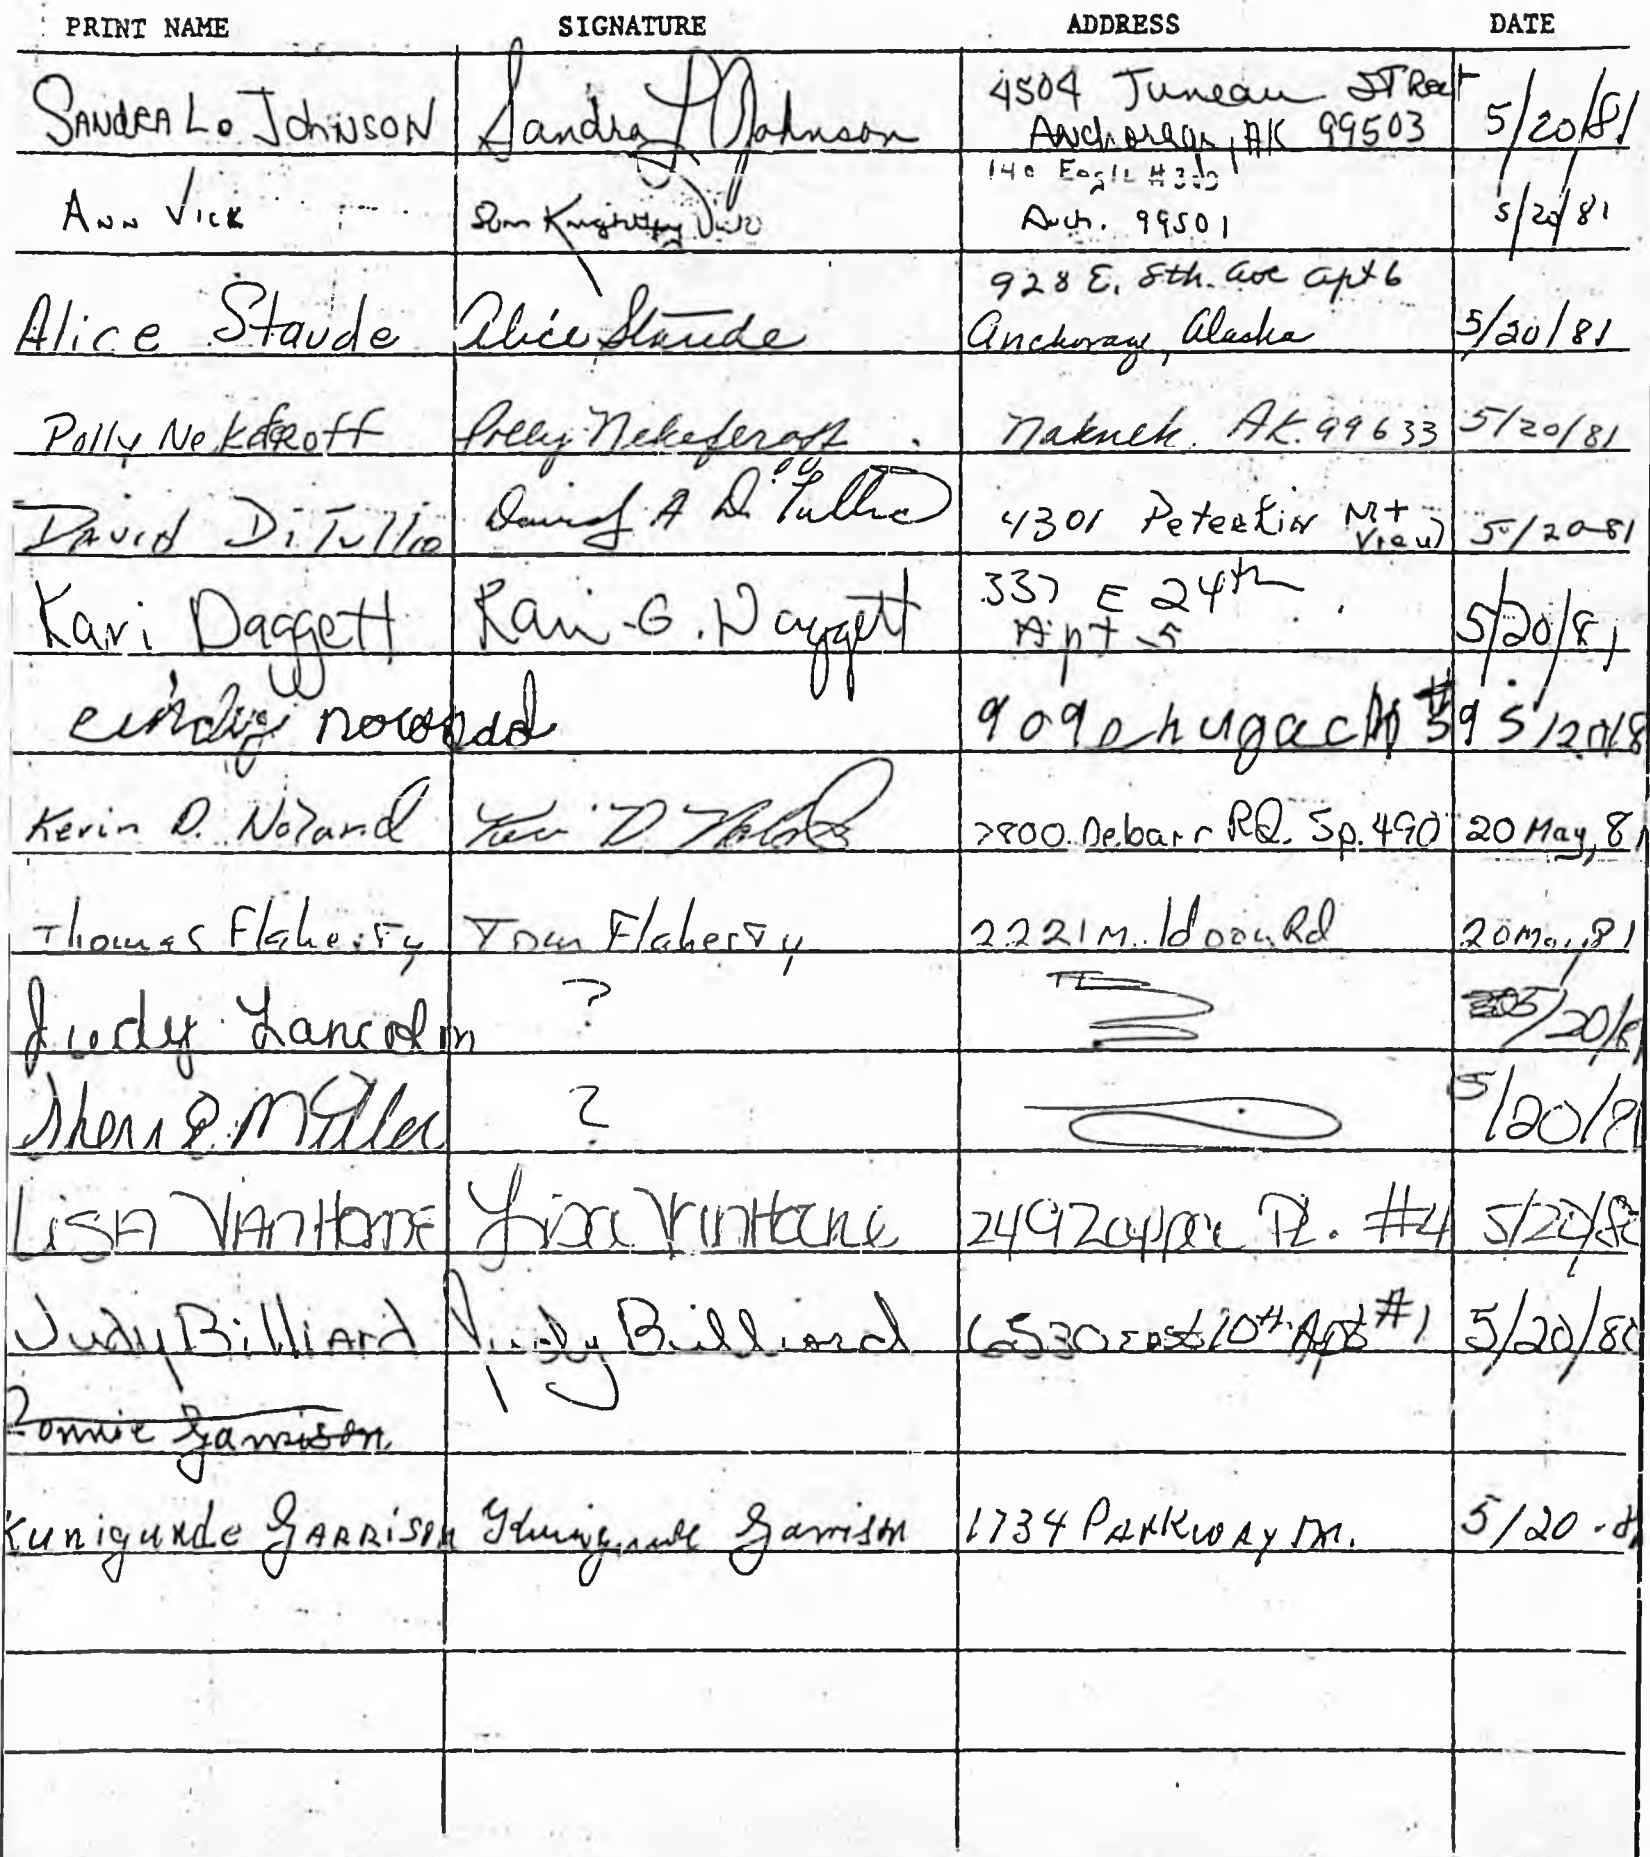 PRINT NAME SIGNATURE ADDRESS DATE
SANDRA L. JOHNSON Sandra L Johnson 4504 Juneau STReet 5/20/81
Anchorage, AK 99503
ANN VICK Ann Vick Eagle
Anch. 99501 5/20/81
928 E. 8th. ave apt 6
Alice Staude Alice Staude Anchorage, Alaska 5/20/81
Polly Nekeferoff Polly Nekeferoff Naknek. AK. 99633 5/20/81
David DiTullio David A DiTullio 4301 Peterkin Mt View 5/20-81
Kari Daggett Kari G. Daggett 337 E 24th 5/20/81
Apt 5
cindy 909 chugach # 59 5/20/8
Kevin D. Noland Kevin D. Noland 7800 Debarr RD. Sp. 490 20 May, 81
Thomas Flaherty Tom Flaherty 2221 Rd 20 Ma 81
Judy ? 5/20/8
Miller ? 5/20/8
LISA VANHORNE Lisa VanHorne Pl. #4 5/20/80
Judy Billiard Judy Billiard 6530 east 10th Apt #1 5/20/80
onnie Garrison
Kunigunde GARRISON Kunigunde Garrison 1734 PARKWAY DR. 5/20-8